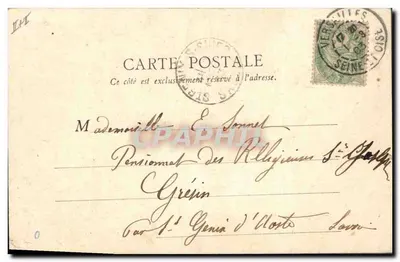 CARTE POSTALE
Ce côté est exclusivement réservé à l'adresse.
VERSAILLES
SEINE ET OISE
CPAPHIL
Mademoiselle E Sonnet
Pensionnat des Religieuses St Joseph
Grésin
Par St Genix d'Aoste Savoie